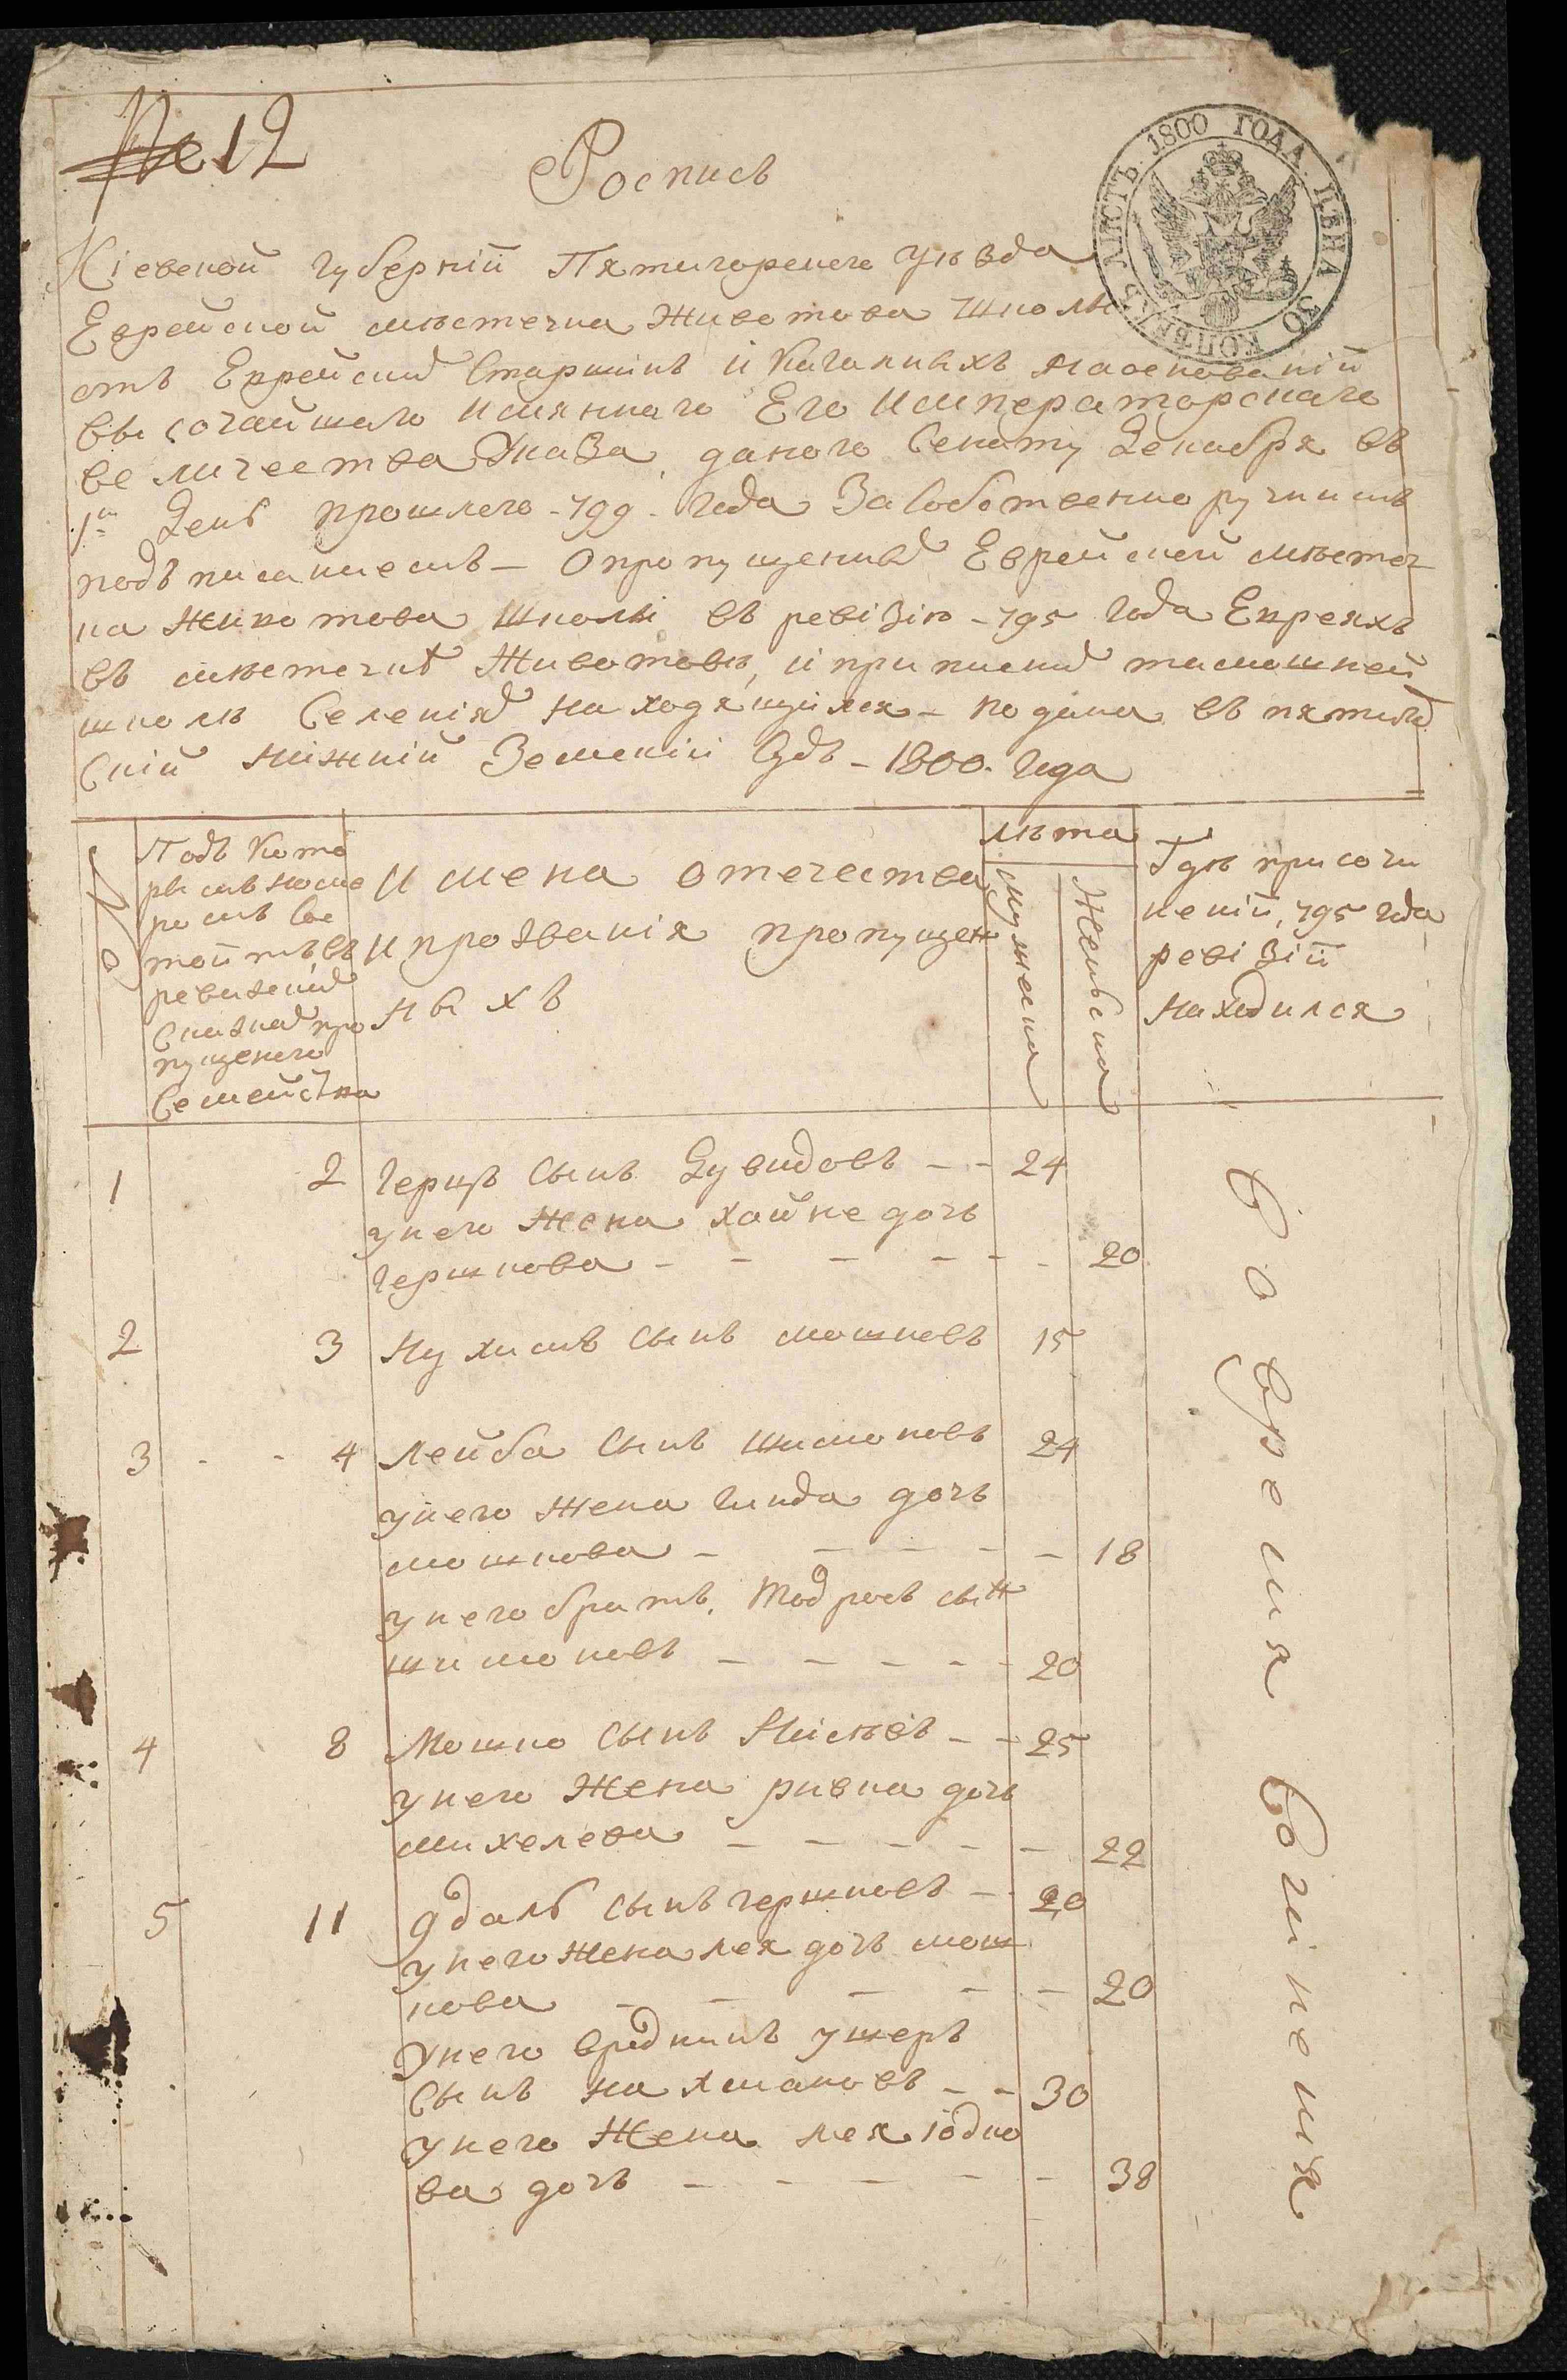 № 12
Роспись
1800 ГОДА. ЦѢНА 30 КОПѢЕКЪ ЛИСТЪ
Кіевской губерніи Пятигорскаго уѣзда
Еврейской мѣстечка Животова школы
отъ Еврейскихъ Старшинъ и Кагалныхъ на основаніи
Высочаишаго имяннаго Его Императорскаго
величества Указа, даного Сенату Декабря въ
1й День прошлого 799 года За Собственноручнимъ
подъписаніемъ – О пропущенныхъ Еврейской мѣстеч-
ка Животова Школы въ ревізію – 795 года Евреяхъ
въ мѣстечкѣ Животовѣ, и приписныхъ тамошней
школѣ Селеніяхъ находящихся – подана въ пятигор
Скій Ніжній Земскіи Судъ – 1800. года
№
Подъ Кото
рымъ номе
ромъ Сос
тоитъ въ
ревизскихъ
Сказкахъ про
пущеного
Семейства
Имена отечества
и прозванія пропущен
ныхъ
лѣта
Мужеска
Женьска
Гдѣ при сочи
неніи, 795 года
ревізіи
находился
1 2 Герцъ Сынъ Дувидовъ – – 24
у него Жена Хайне дочь
Гершкова – – – – – – 20
2 3 Нухимъ Сынъ мошковъ 15
3 - - 4 Лейба Сынъ Шимоновъ 24
у него Жена Гинда дочь
мошкова – – – – – – 18
у него братъ, Тодросъ сын
шимоновъ – – – – – 20
4 8 Мошко Сынъ Ніснѣвъ – – 25
у него Жена ривка дочь
михелева – – – – – – 22
5 11 Юдаль Сынъ гершковъ – 20
у него Жена лея дочь мош
кова – – – – – 20
У него вродникъ ушеръ
Сынъ нахмановъ – – 30
у него Жена лея іодко
ва дочь – – – – – 38
Во время сочиненія